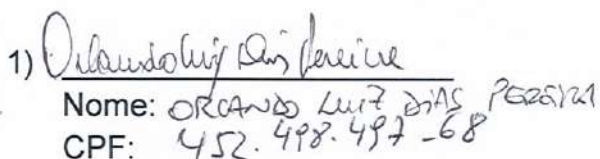 1) Orlando Luiz Dias Pereira
Nome: ORLANDO LUIZ DIAS PEREIRA
CPF: 452.498.497-68